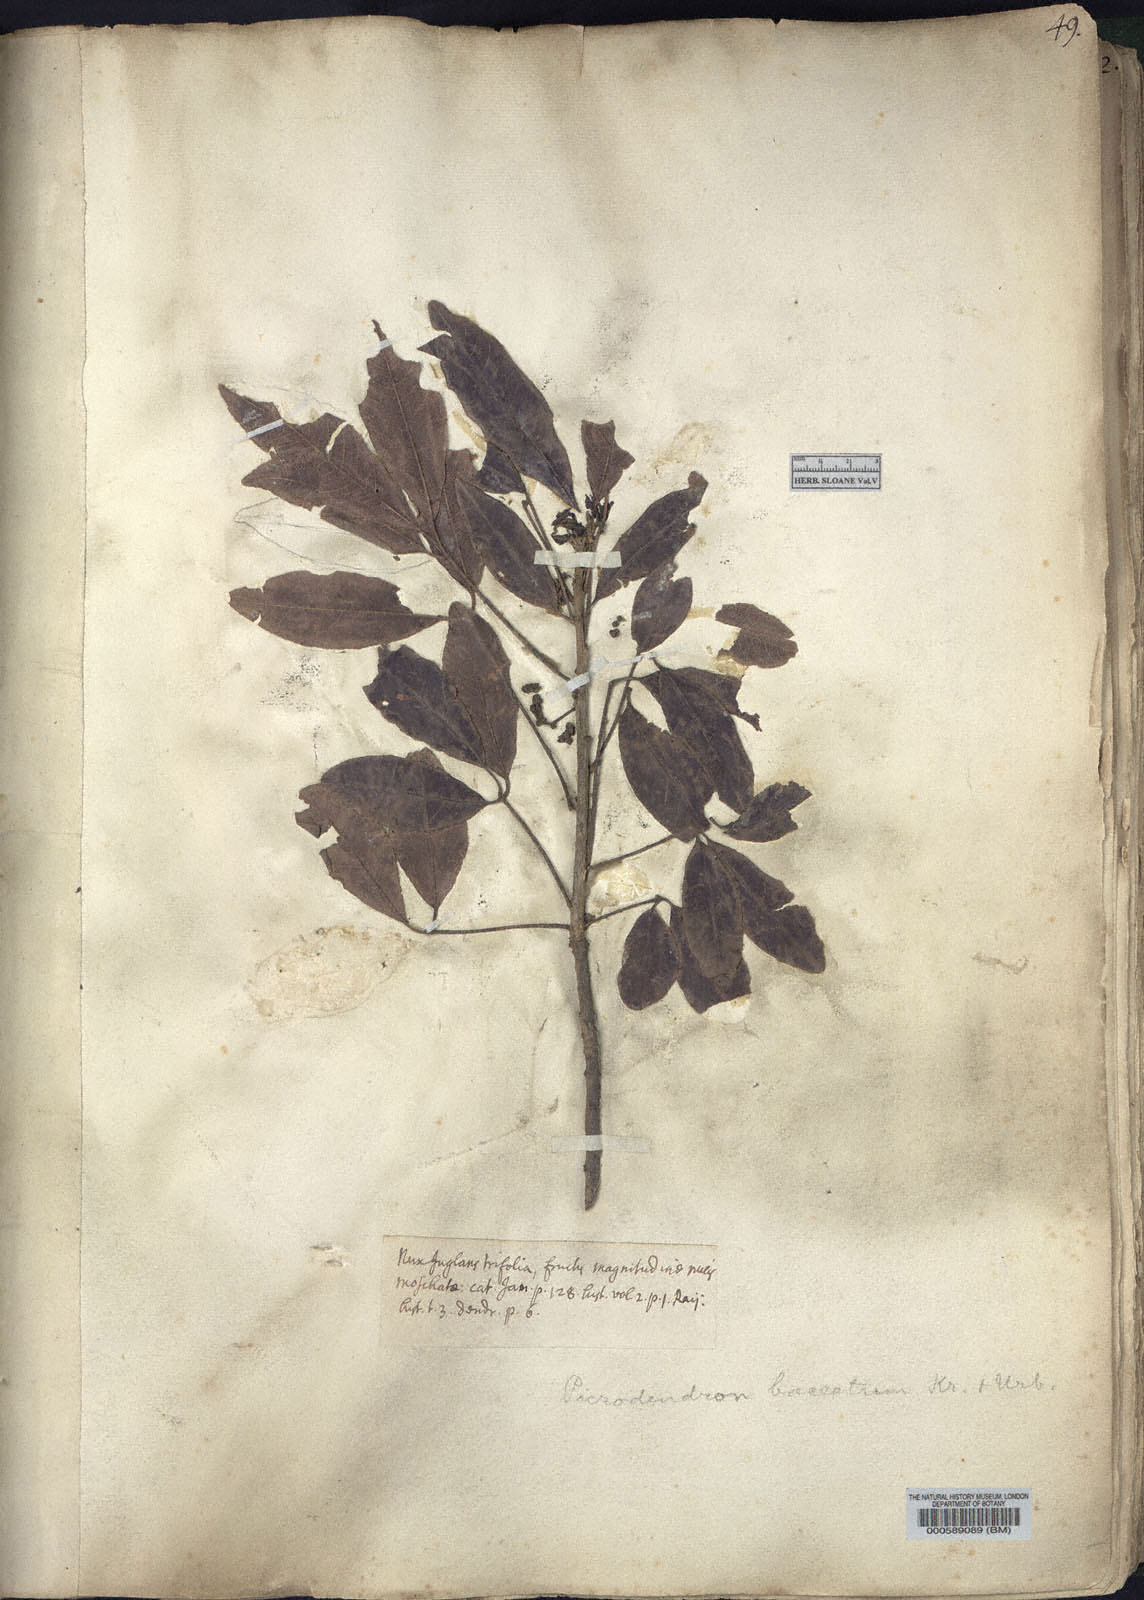 49.
2.
HERB. SLOANE Vol.V
Nux Juglans trifolia, fructu magnitudine nucis
moschatæ. cat. Jam. p. 128. hist. vol 2. p. 1. Raij.
hist. t. 3. dendr. p. 6.
Picrodendron baccatum Kr. & Urb.
THE NATURAL HISTORY MUSEUM, LONDON
DEPARTMENT OF BOTANY
000589089 (BM)